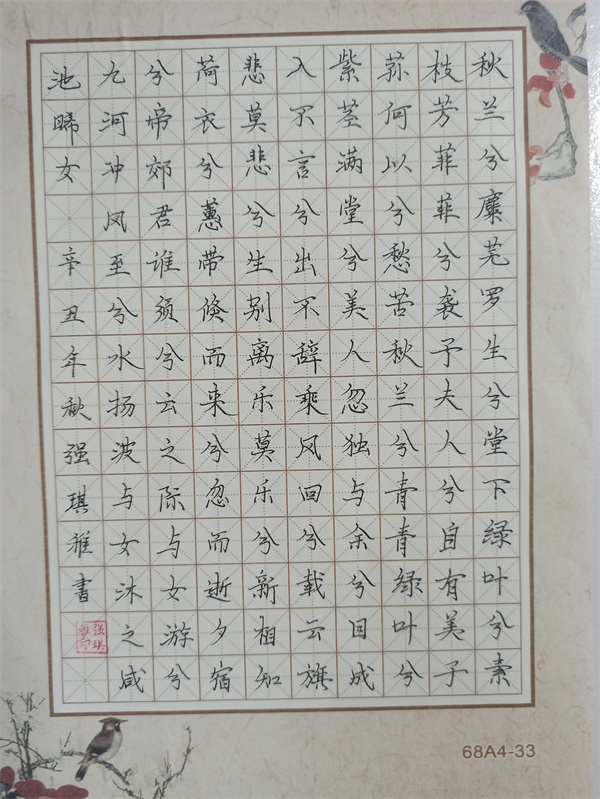 秋兰兮麋芜罗生兮堂下绿叶兮素
枝芳菲菲兮袭予夫人兮自有美子
荪何以兮愁苦秋兰兮青青绿叶兮
紫茎满堂兮美人忽独与余兮目成
入不言兮出不辞乘风回兮载云旗
悲莫悲兮生别离乐莫乐兮新相知
荷衣兮蕙带倏而来兮忽而逝夕宿
兮帝郊君谁须兮云之际与女游兮
九河冲风至兮水扬波与女沐之咸
池晞女 辛丑年秋强琪雅书
强琪
68A4-33